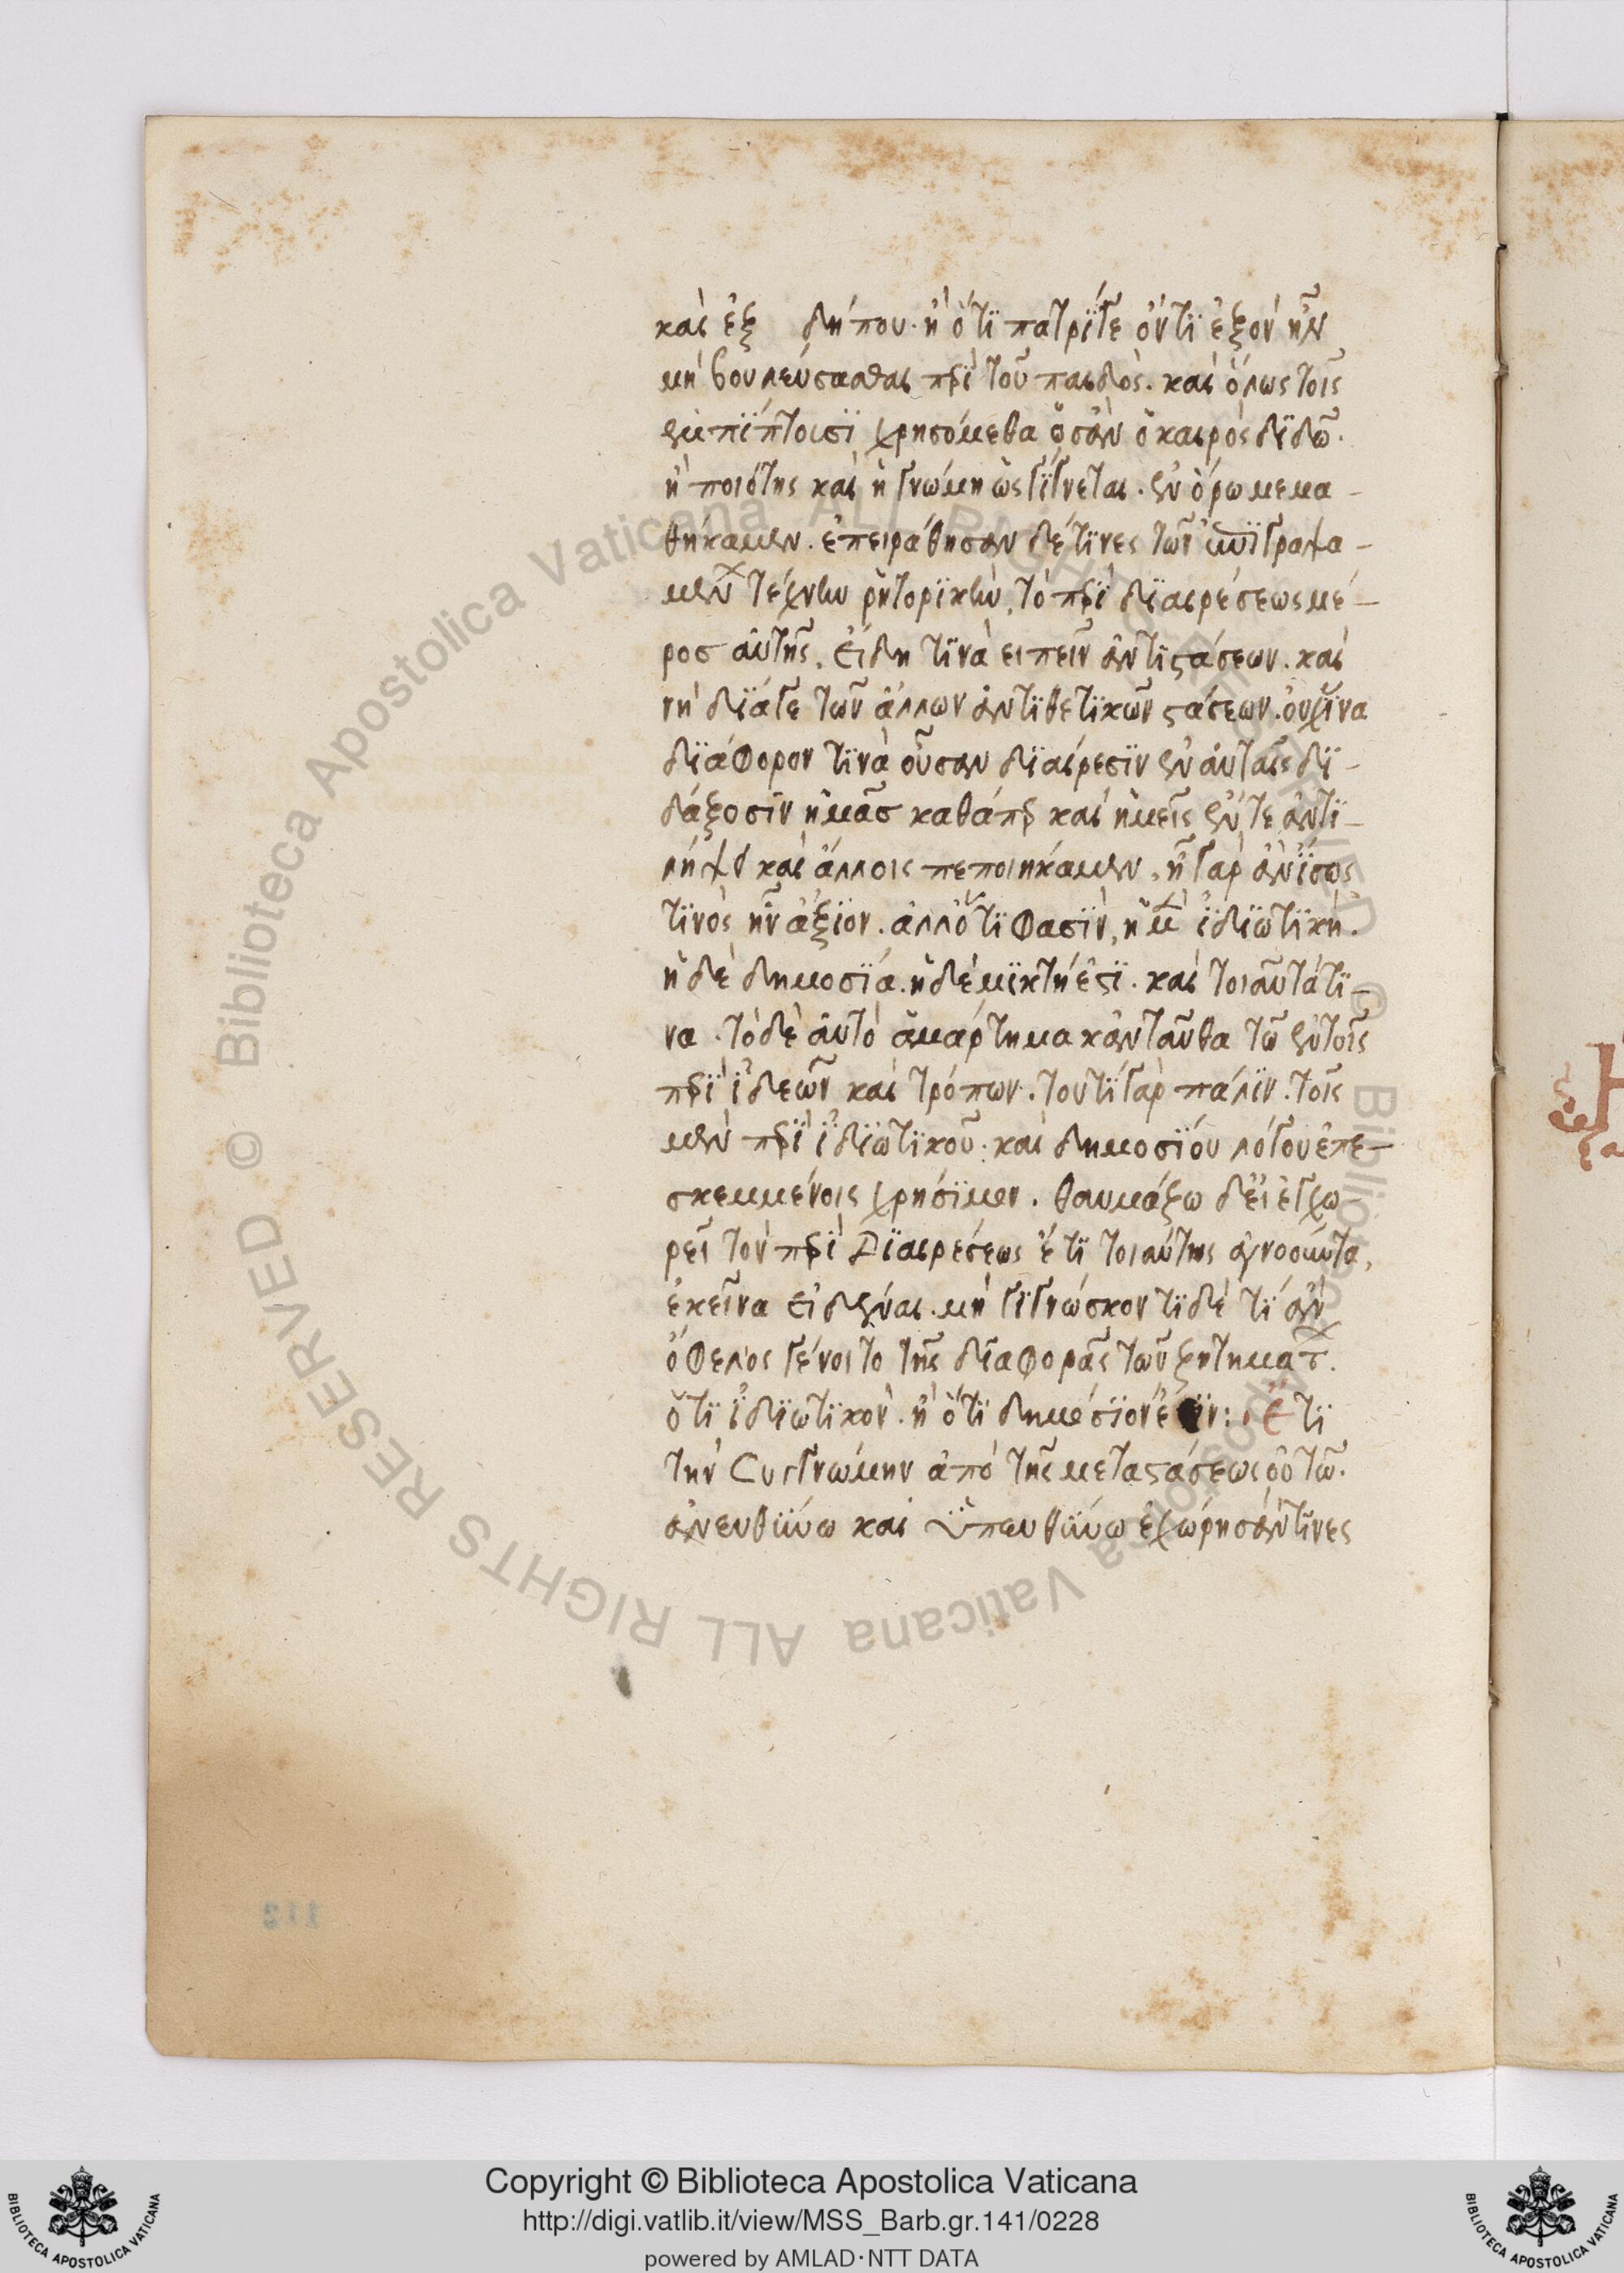 καὶ ἐξ δήπου. ἢ ὅτι πατρί γε ὄντι ἐξὸν ἦν
μὴ βουλεύσασθαι περὶ τοῦ παιδὸς. καὶ ὅλως τοῖς
ἐμπίπτουσι χρησόμεθα ὅσ᾽ ἂν ὁ καιρὸς διδῶ.
ἡ ποιότης καὶ ἡ γνώμη ὡς γίγνεται. ἐν ὅρω μεμα-
θήκαμεν. ἐπειράθησαν δέ τινες τῶν
μὲν τέχνην ῥητορικὴν, τὸ περὶ διαιρέσεως μέ-
ροσ αὐτῆς, εἴδη τινὰ ειπεῖν ἀντιστάσεων. καὶ
νὴ δία γε τῶν ἄλλων ἀντιθετικῶν στάσεων. οὐχ ἵνα
διάφορον τινὰ οὖσαν διαίρεσιν ἐν αὐταῖς δι-
δάξοσιν ἡμᾶσ καθάπερ καὶ ἡμεῖς ἔν τε ἀντι-
λήψει καὶ ἄλλοις πεποιήκαμεν, ἦ γὰρ ἂν ἴσως
τινὸς ἦν ἄξιον. ἀλλ᾽ ὅτι φασὶν, ἡ μὲν ἰδιωτικὴ.
ἡ δὲ δημοσία. ἡ δὲ μικτή ἐστι. καὶ τοιαῦτά τι-
να. τὸ δὲ αὐτὸ ἁμάρτημα κἀνταῦθα τῶ ἐν τοῖς
περὶ ἰδεῶν καὶ τρόπων. τουτὶ γὰρ πάλιν. τοῖς
μὲν περὶ ἰδιωτικοῦ. καὶ δημοσίου λόγου ἐπε-
σκεμμένοις χρήσιμον. θαυμάζω δ᾽ εἰ ἐγχω-
ρεῖ τὸν περὶ Διαιρέσεως ἔτι τοιαύτης ἀγνοοῦντα,
ἐκεῖνα εἰδέναι. μὴ γιγνώσκοντι δὲ τί ἂν
ὄφελος γένοιτο τῆς διαφορᾶς τῶν ζητημάτων.
ὅτι ἰδιωτικὸν. ἢ ὅτι δημόσιον : Ἔτι
τὴν Συγγνώμην ἀπὸ τῆς μεταστάσεως τῶ.
ἀνευθύνω καὶ ὑπευθύνω ἐχώρησάν τινες
http://digi.vatlib.it/view/MSS_Barb.gr.141/0228
Copyright © Biblioteca Apostolica Vaticana
powered by AMLAD·NTT DATA
© Biblioteca Apostolica Vaticana ALL RIGHTS RESERVED
BIBLIOTECA APOSTOLICA VATICANA
BIBLIOTECA APOSTOLICA VATICANA